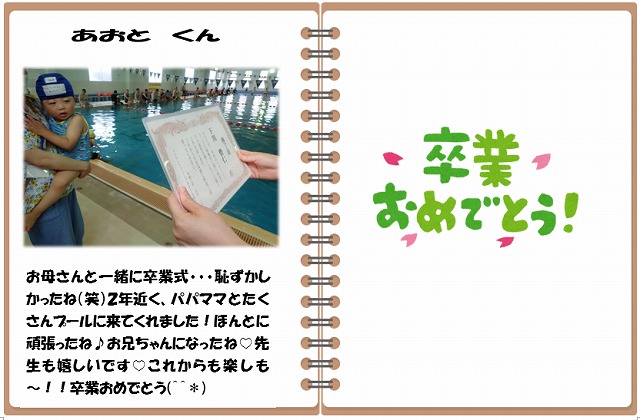 あおと くん
お母さんと一緒に卒業式・・・恥ずかし
かったね(笑)2年近く、パパママとたく
さんプールに来てくれました！ほんとに
頑張ったね♪お兄ちゃんになったね♡先
生も嬉しいです♡これからも楽しも
～！！卒業おめでとう(^^*)
卒業
おめでとう！